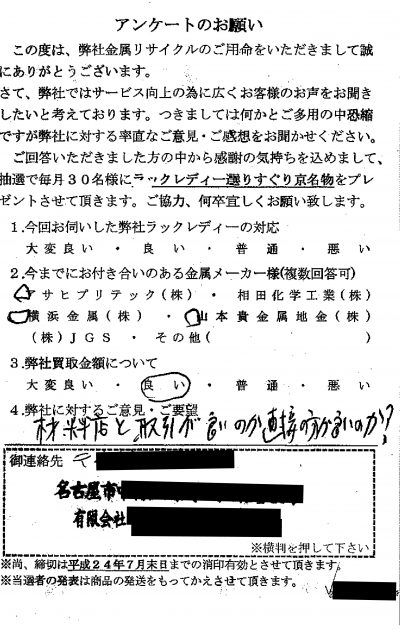 アンケートのお願い
この度は、弊社金属リサイクルのご用命をいただきまして誠
にありがとうございます。
さて、弊社ではサービス向上の為に広くお客様のお声をお聞き
したいと考えております。つきましては何かとご多用の中恐縮
ですが弊社に対する率直なご意見・ご感想をお聞かせください。
ご回答いただきました方の中から感謝の気持ちを込めまして、
抽選で毎月30名様にラックレディー選りすぐり京名物をプレ
ゼントさせて頂きます。ご協力、何卒宜しくお願い致します。
1.今回お伺いした弊社ラックレディーの対応
大変良い・良い・普通・悪い
2.今までにお付き合いのある金属メーカー様(複数回答可)
アサヒプリテック(株)・相田化学工業(株)
横浜金属(株)・山本貴金属地金(株)
(株)JGS・その他( )
3.弊社買取金額について
大変良い・良い・普通・悪い
4.弊社に対するご意見・ご要望
材料店と取引が良いのか直接の方が良いのか?
御連絡先 〒
名古屋市中
有限会社
※横判を押して下さい
※尚、締切は平成24年7月末日までの消印有効とさせて頂きます。
※当選者の発表は商品の発送をもってかえさせて頂きます。